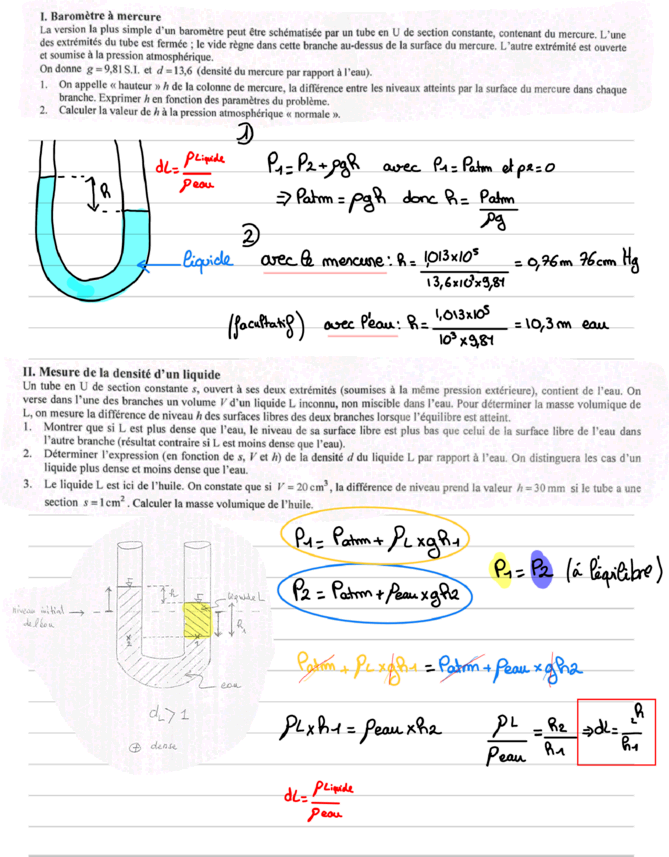 I. Baromètre à mercure
La version la plus simple d'un baromètre peut être schématisée par un tube en U de section constante, contenant du mercure. L'une
des extrémités du tube est fermée ; le vide règne dans cette branche au-dessus de la surface du mercure. L'autre extrémité est ouverte
et soumise à la pression atmosphérique.
On donne g = 9,81 S.I. et d = 13,6 (densité du mercure par rapport à l'eau).
1. On appelle « hauteur » h de la colonne de mercure, la différence entre les niveaux atteints par la surface du mercure dans chaque
branche. Exprimer h en fonction des paramètres du problème.
2. Calculer la valeur de h à la pression atmosphérique « normale ».
1)
dL = ρLiquide / ρeau
P1 = P2 + ρgh avec P1 = Patm et p2 = 0
⇒ Patm = ρgh donc h = Patm / ρg
h
liquide
2)
avec le mercure : h = 1,013×10⁵ / 13,6×10³×9,81 = 0,76m 76cm Hg
(facultatif) avec l'eau : h = 1,013×10⁵ / 10³×9,81 = 10,3m eau
II. Mesure de la densité d'un liquide
Un tube en U de section constante s, ouvert à ses deux extrémités (soumises à la même pression extérieure), contient de l'eau. On
verse dans l'une des branches un volume V d'un liquide L inconnu, non miscible dans l'eau. Pour déterminer la masse volumique de
L, on mesure la différence de niveau h des surfaces libres des deux branches lorsque l'équilibre est atteint.
1. Montrer que si L est plus dense que l'eau, le niveau de sa surface libre est plus bas que celui de la surface libre de l'eau dans
l'autre branche (résultat contraire si L est moins dense que l'eau).
2. Déterminer l'expression (en fonction de s, V et h) de la densité d du liquide L par rapport à l'eau. On distinguera les cas d'un
liquide plus dense et moins dense que l'eau.
3. Le liquide L est ici de l'huile. On constate que si V = 20 cm³, la différence de niveau prend la valeur h = 30 mm si le tube a une
section s = 1 cm². Calculer la masse volumique de l'huile.
P1 = Patm + ρL × gh1
P2 = Patm + ρeau × gh2
P1 = P2 (à l'équilibre)
h
liquide L
niveau initial
de l'eau
h1
2
1
eau
dL > 1
⊕ dense
Patm + ρL × gh1 = Patm + ρeau × gh2
ρL × h1 = ρeau × h2
ρL / ρeau = h2 / h1 ⇒ dL = 2h / h1
dL = ρLiquide / ρeau